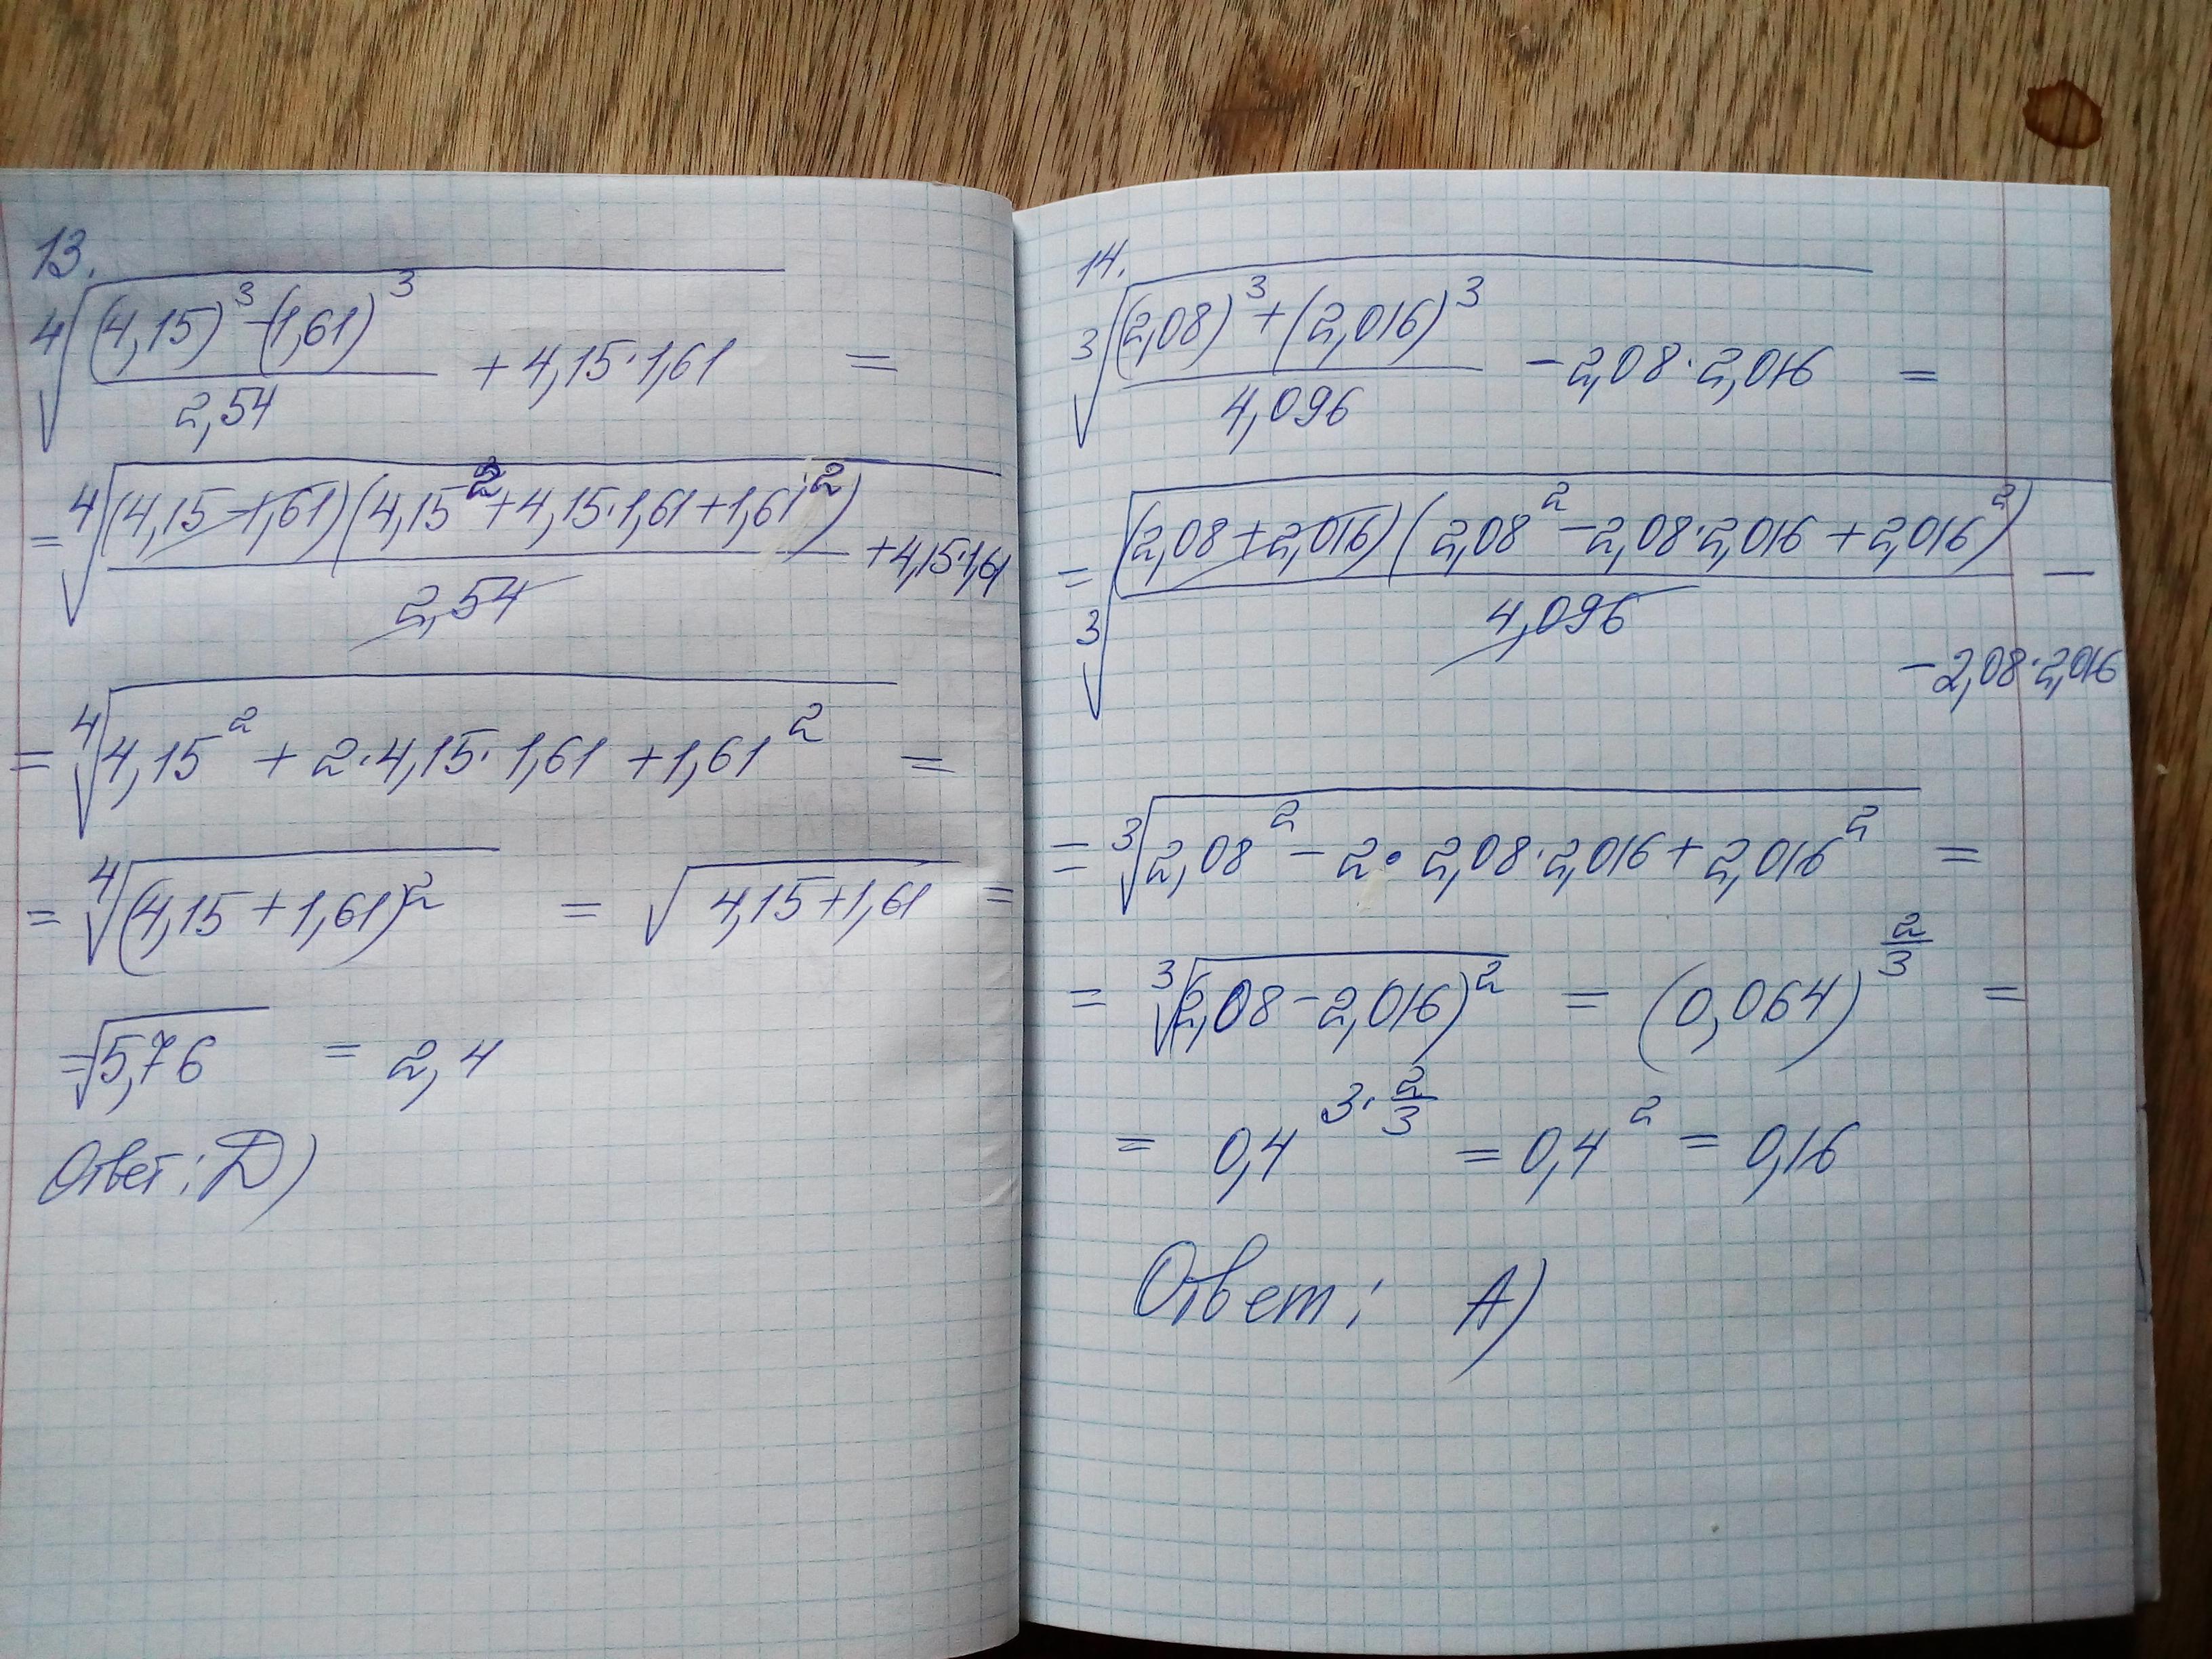 13.
⁴√((4,15)³ - (1,61)³ / 2,54 + 4,15·1,61) =
= ⁴√((4,15 - 1,61)(4,15² + 4,15·1,61 + 1,61²) / 2,54 + 4,15·1,61
= ⁴√(4,15² + 2·4,15·1,61 + 1,61²) =
= ⁴√((4,15 + 1,61)²) = √(4,15 + 1,61) =
= √5,76 = 2,4
Ответ: D)
14.
³√((2,08)³ + (2,016)³ / 4,096 - 2,08·2,016) =
= ³√((2,08 + 2,016)(2,08² - 2,08·2,016 + 2,016²) / 4,096 -
- 2,08·2,016
= ³√(2,08² - 2·2,08·2,016 + 2,016²) =
= ³√((2,08 - 2,016)²) = (0,064)^(2/3) =
= 0,4^(3·2/3) = 0,4² = 0,16
Ответ: A)